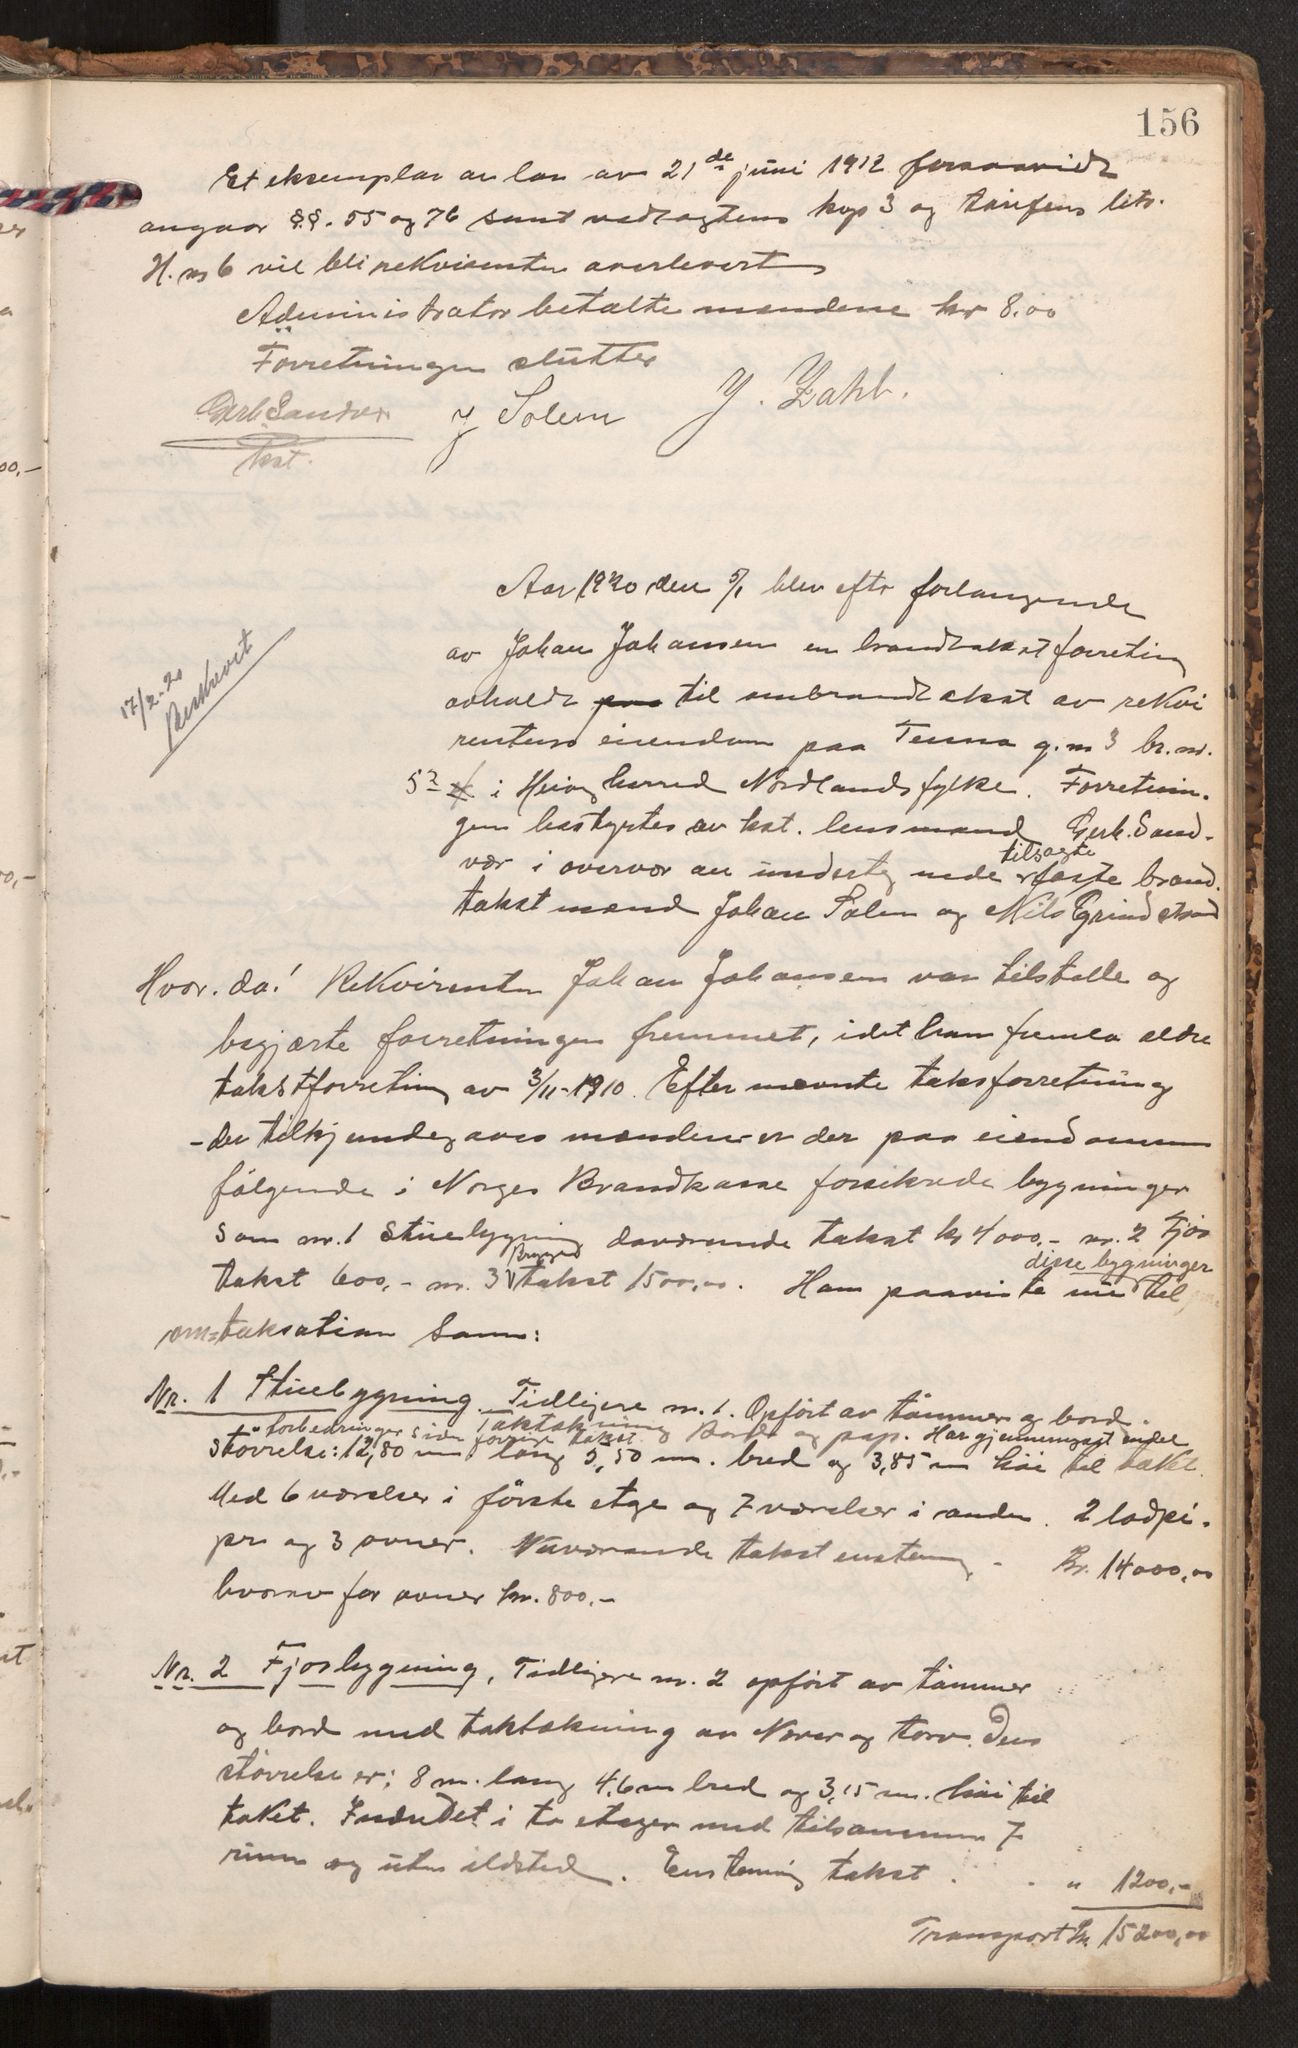 156
Et eksemplar av lov av 21de juni 1912 forsaavidt
angaar §§. 55 og 76 samt vedtægtens kap 3 og tarifens lits.
H. nr 6 vil bli rekvirenten overlevert
Administrator betalte mændene kr 8.00
Forretningen slutter
Gerh Sandvær J Solem J. Zahl.
kst.
Aar 1920 den 5/1 blev efter forlangende
av Johan Johansen en brandtakstforretning
avholdt paa til ombrandtakst av rekvi
17/2-20
Beskrevet
rentens eiendom paa Tenna g.nr 3 br.nr.
52 i Herøy herred Nordlands fylke. Forretnin-
gen bestyrtes av kst. lensmand Gerh. Sand-
vær i overvær av undertegnede tilsagte faste brand-
takstmænd Johan Solem og Nils Grindstrand
Hvor. da! Rekvirenten Johan Johansen var tilstede og
begjærte forretningen fremmet, idet han fremla ældre
takstforretning av 3/11-1910. Efter nævnte taksforretning
- der tilkjendegaves mændene er der paa eiendommen
følgende i Norges Brandkasse forsikrede bygninger
som nr. 1 Stuebygning daværende takst kr 4000,- nr. 2 Fjøs
takst 600,- nr. 3 Brygge takst 1500,00. Han paaviste disse bygninger til
om=taksation som:
Nr. 1 Stuebygning. Tidligere nr. 1. Opført av tømmer og bord.
Taktækning Bord og pap. Har gjennemgaat endel
forbedringer siden forrige takst
Størrelse: 12,80 m lang 5,50 m. bred og 3,85 m høi til taket.
Med 6 værelser i første etage og 7 værelser i anden. 2 lodpi-
per og 3 ovner. Nuværende takst enstemmig - Kr. 14000,00
hvorav for ovner kr. 800.-
Nr. 2 Fjosbygning, Tidligere nr. 2 opført av tømmer
og bord med taktækning av Never og torv. Dens
størrelse er: 8 m. lang 4,6 m bred og 3,15 m. høi til
taket. Indredet i to etager med tilsammen 7
rum og uten ildsted. Enstemmig takst . . " 1200,-
Transport Kr. 15200,00